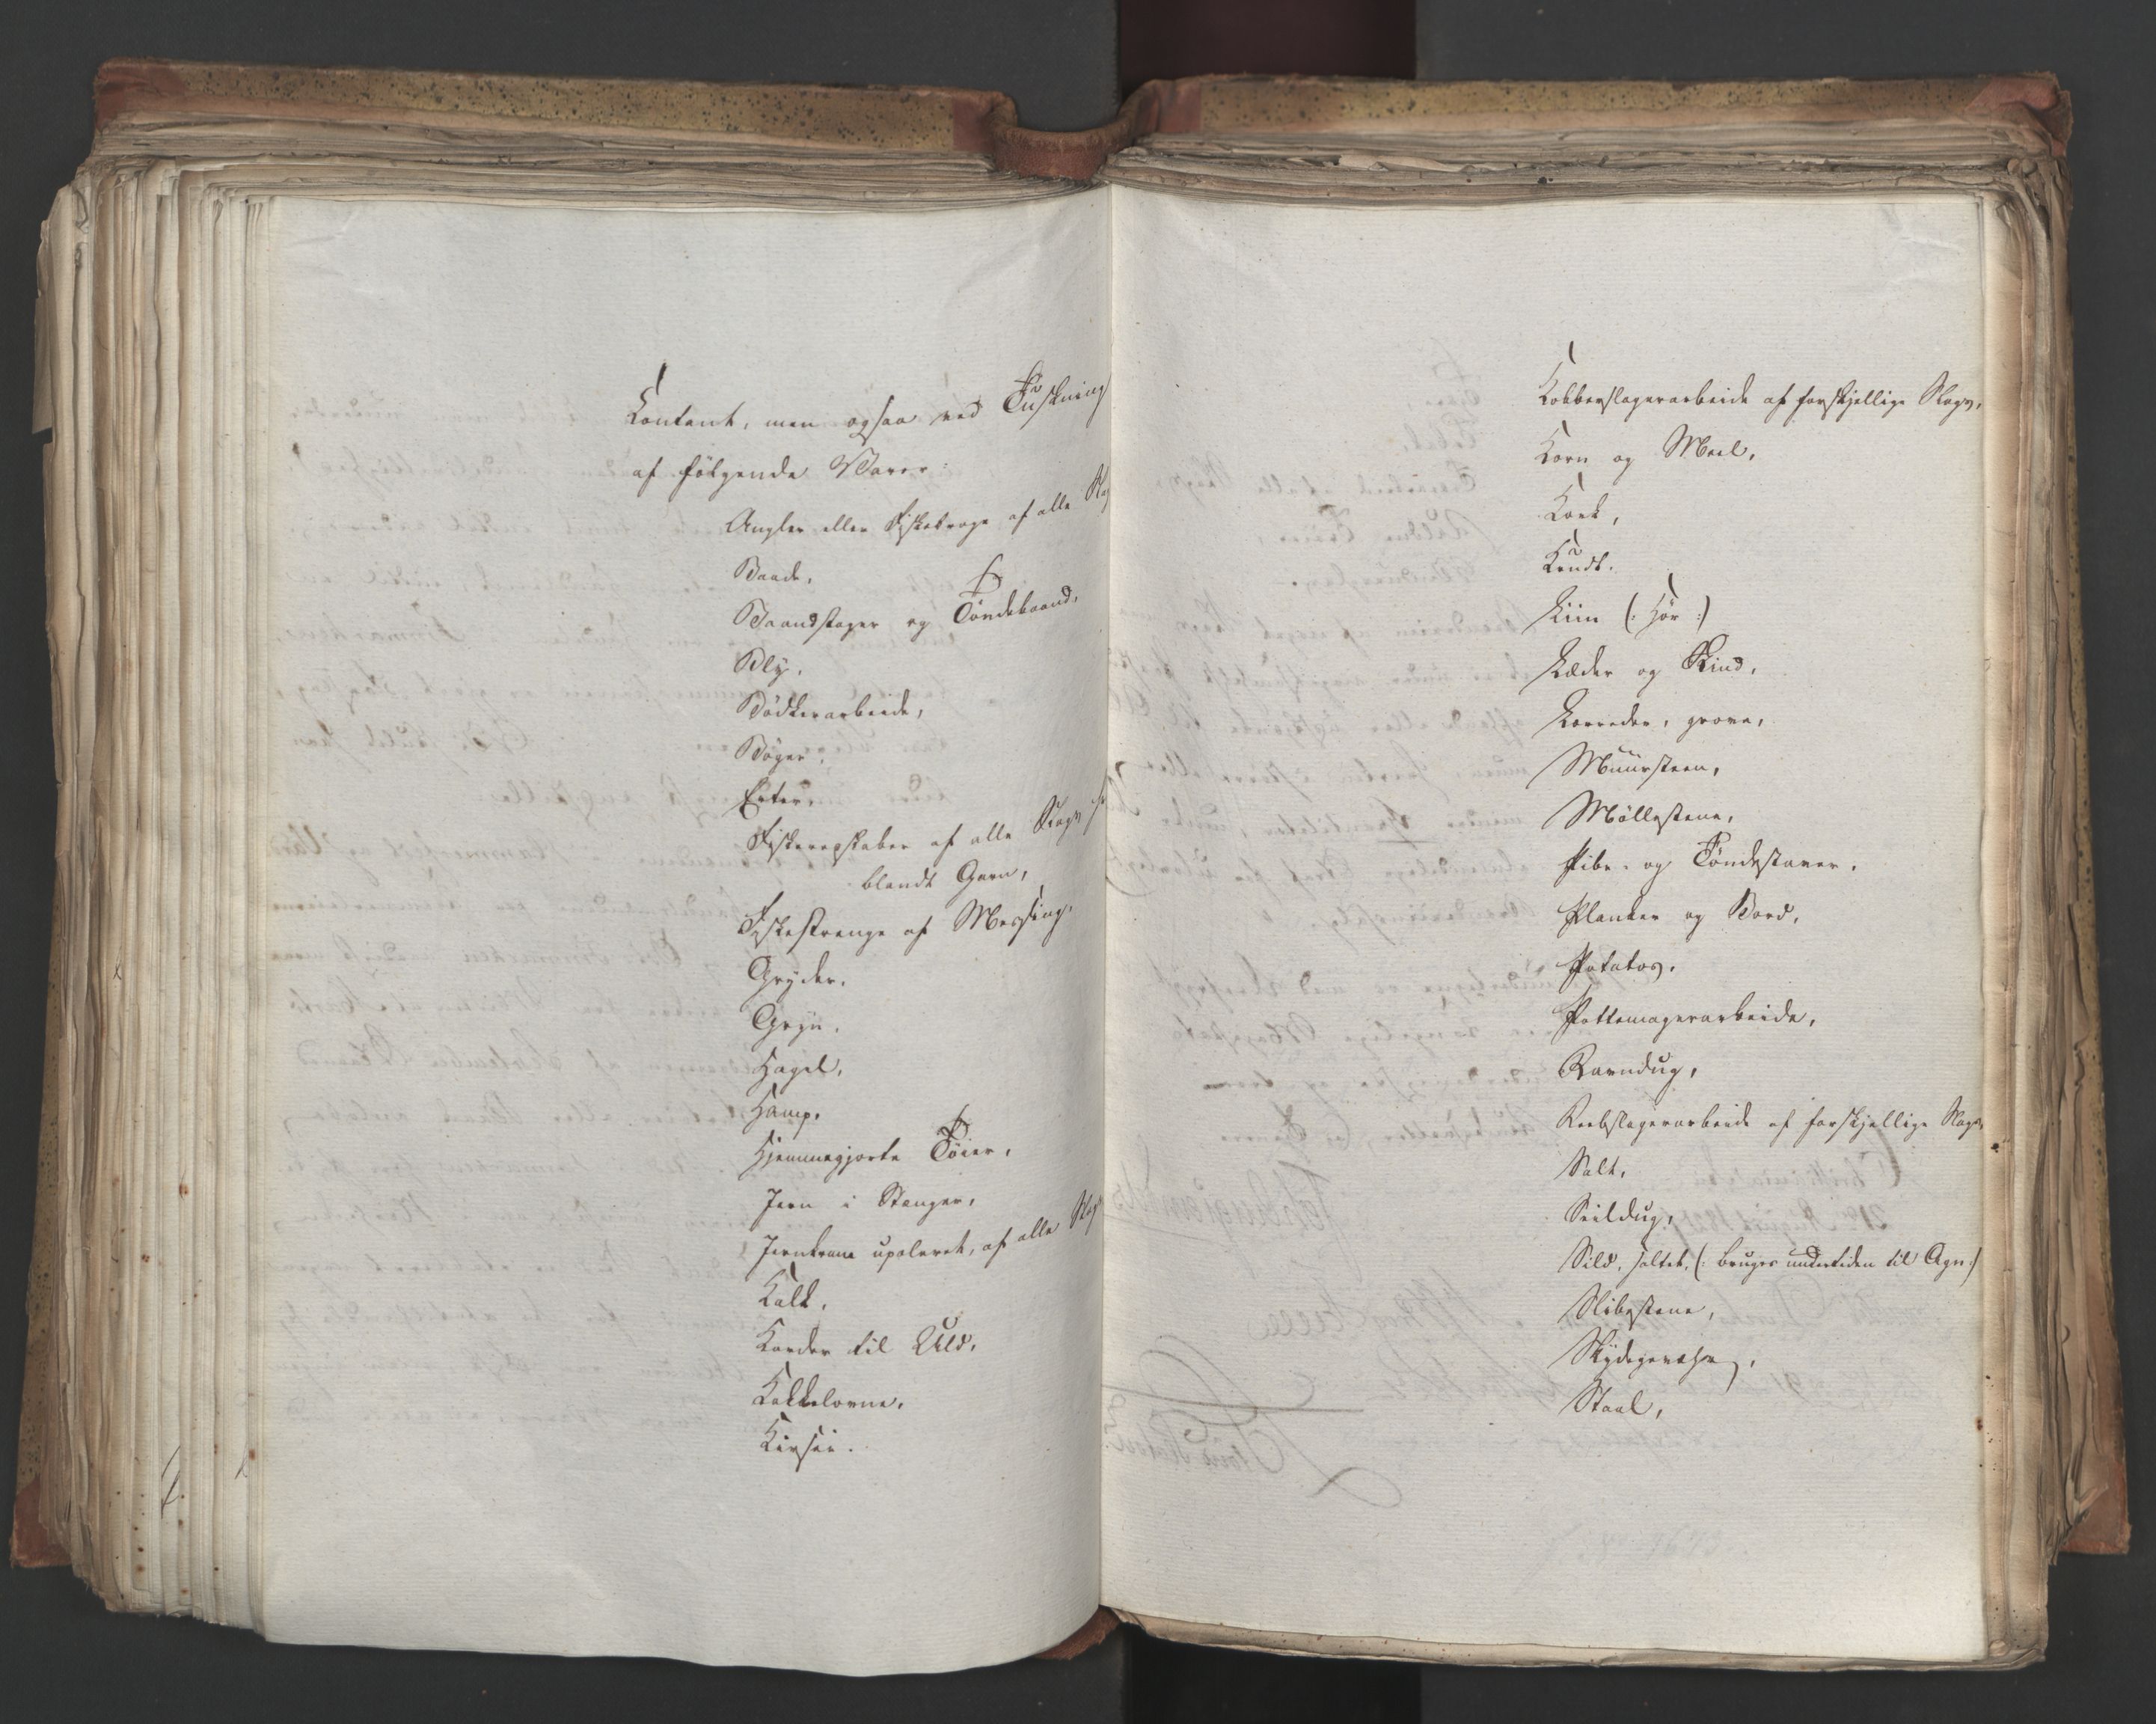 Contant, men ogsaa ved Tuskning
af følgende Varer:
Angler eller Fiskekroge af alle Slag
Baade,
Baandstager og Tøndebaand,
Bly,
Bødkerarbeide,
Bøger,
Erter,
Fiskeredskaber af alle Slags
blandt Garn,
Fiskestrenge af Messing,
Gryder,
Gryn,
Hagel,
Hamp,
Hjemmegjorte Tøier,
Jern i Stænger,
Jernkram upoleret, af alle Slags
Kalk,
Karder til Uld,
Kakkelovne,
Kirsei.
Kobberslagerarbeide af forskjellige Slags,
Korn og Meel,
Kork,
Krudt.
Liin (: Hør :)
Læder og Skind,
Lærreder, grove,
Muursteen,
Møllestene,
Pibe- og Tøndestaver.
Planker og Bord,
Potatos,
Pottemagerarbeide,
Ravndug,
Reebslagerarbeide af forskjellige Slags,
Salt,
Seildug,
Sild, saltet, (: bruges undertiden til Agn :)
Slibestene,
Skydegevæhr,
Staal,